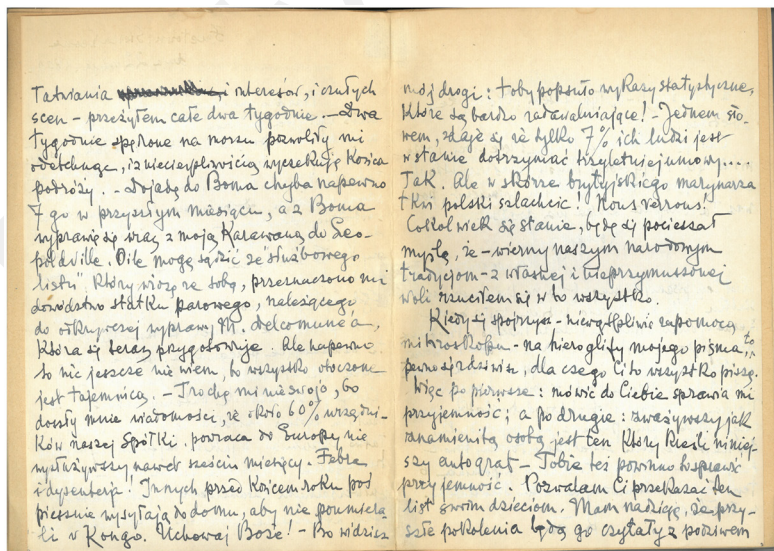 Tatwiania i interesów, i czułych
scen – przeżyłem całe dwa tygodnie. – Dwa
tygodnie spędzone na morzu pozwoliły mi
odetchnąć, i z niecierpliwością wyczekuję końca
podróży. – Dojadę do Boma chyba napewno
7 go w przyszłym miesiącu, a z Boma
wyprawię się wraz z moją Karawaną do Leo-
poldville. O ile mogę sądzić ze służbowego
listu", który wiozę ze sobą, przeznaczono mi
dowództwo statku parowego, należącego
do odkrywczej wyprawy M. Delcomune'a,
która się teraz przygotowuje. Ale napewno
to nic jeszcze nie wiem, bo wszystko otoczone
jest tajemnicą. – Trochę mi nieswojo, bo
doszły mnie wiadomości, że około 60% urzędni-
ków naszej Spółki, powraca do Europy nie
wysłużywszy nawet sześciu miesięcy. Febra
i dysenterja! Innych przed końcem roku poś
piesznie wysyłają do domu, aby nie poumiera-
li w Kongo. Uchowaj Boże! – Bo widzisz
mój drogi: toby popsuło wykazy statystyczne,
które są bardzo zadawalniające! – Jednem sło-
wem, zdaje się że tylko 7% ich ludzi jest
w stanie dotrzymać trzyletniej umowy....
Tak. Ale w skórze brytyjskiego marynarza
tkwi polski szlachcic! Nous verrons!
Cokolwiek się stanie, będę się pocieszał
myślą, że – wierny naszym narodowym
tradycjom – z własnej i nieprzymuszonej
woli rzuciłem się w to wszystko.
Kiedy się spojrzysz – niewątpliwie za pomocą
mikroskopu – na hieroglify mojego pisma, to
pewno się zdziwisz, dla czego Ci to wszystko piszę.
Więc po pierwsze: mówić do Ciebie sprawia mi
przyjemność; a po drugie: zważywszy jak
znamienitą osobą jest ten który kreśli niniej-
szy autograf – Tobie też powinno to sprawić
przyjemność. Pozwalam Ci przekazać ten
list swoim dzieciom. Mam nadzieję, że przy-
szłe pokolenia będą go czytały z podziwem